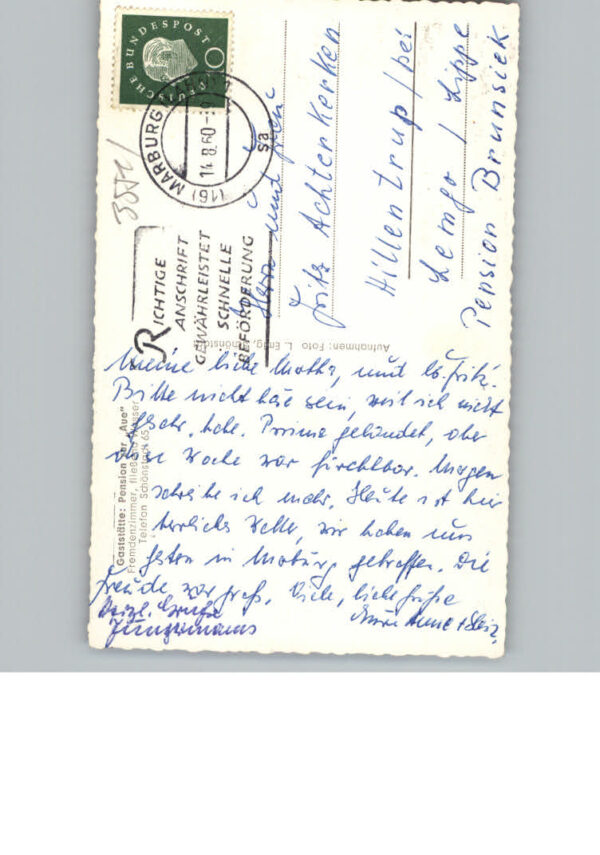 DEUTSCHE BUNDESPOST
10
MARBURG
14.8.60
(16)
sa
RICHTIGE
ANSCHRIFT
GEWÄHRLEISTET
SCHNELLE
BEFÖRDERUNG
Herrn und Frau
Fritz Achterkerken
Hillentrup / bei
Lemgo / Lippe
Pension Brunsiek
Aufnahmen: Foto L. Schönstadt
Gaststätte: Pension zur „Aue"
Fremdenzimmer, fließend Wasser
Telefon Schönstadt 65
Meine liebe Martha, und lb. Fritz.
Bitte nicht böse sein, weil ich nicht
geschr. habe. Prima gelandet, aber
diese Woche war fürchtbar. Morgen
schreibe ich mehr. Heute ist hier
herrliches Wetter, wir haben uns
gestern in Marburg getroffen. Die
Freude war groß. Viele, liebe Grüße
Anne +
Herzl. Grüße